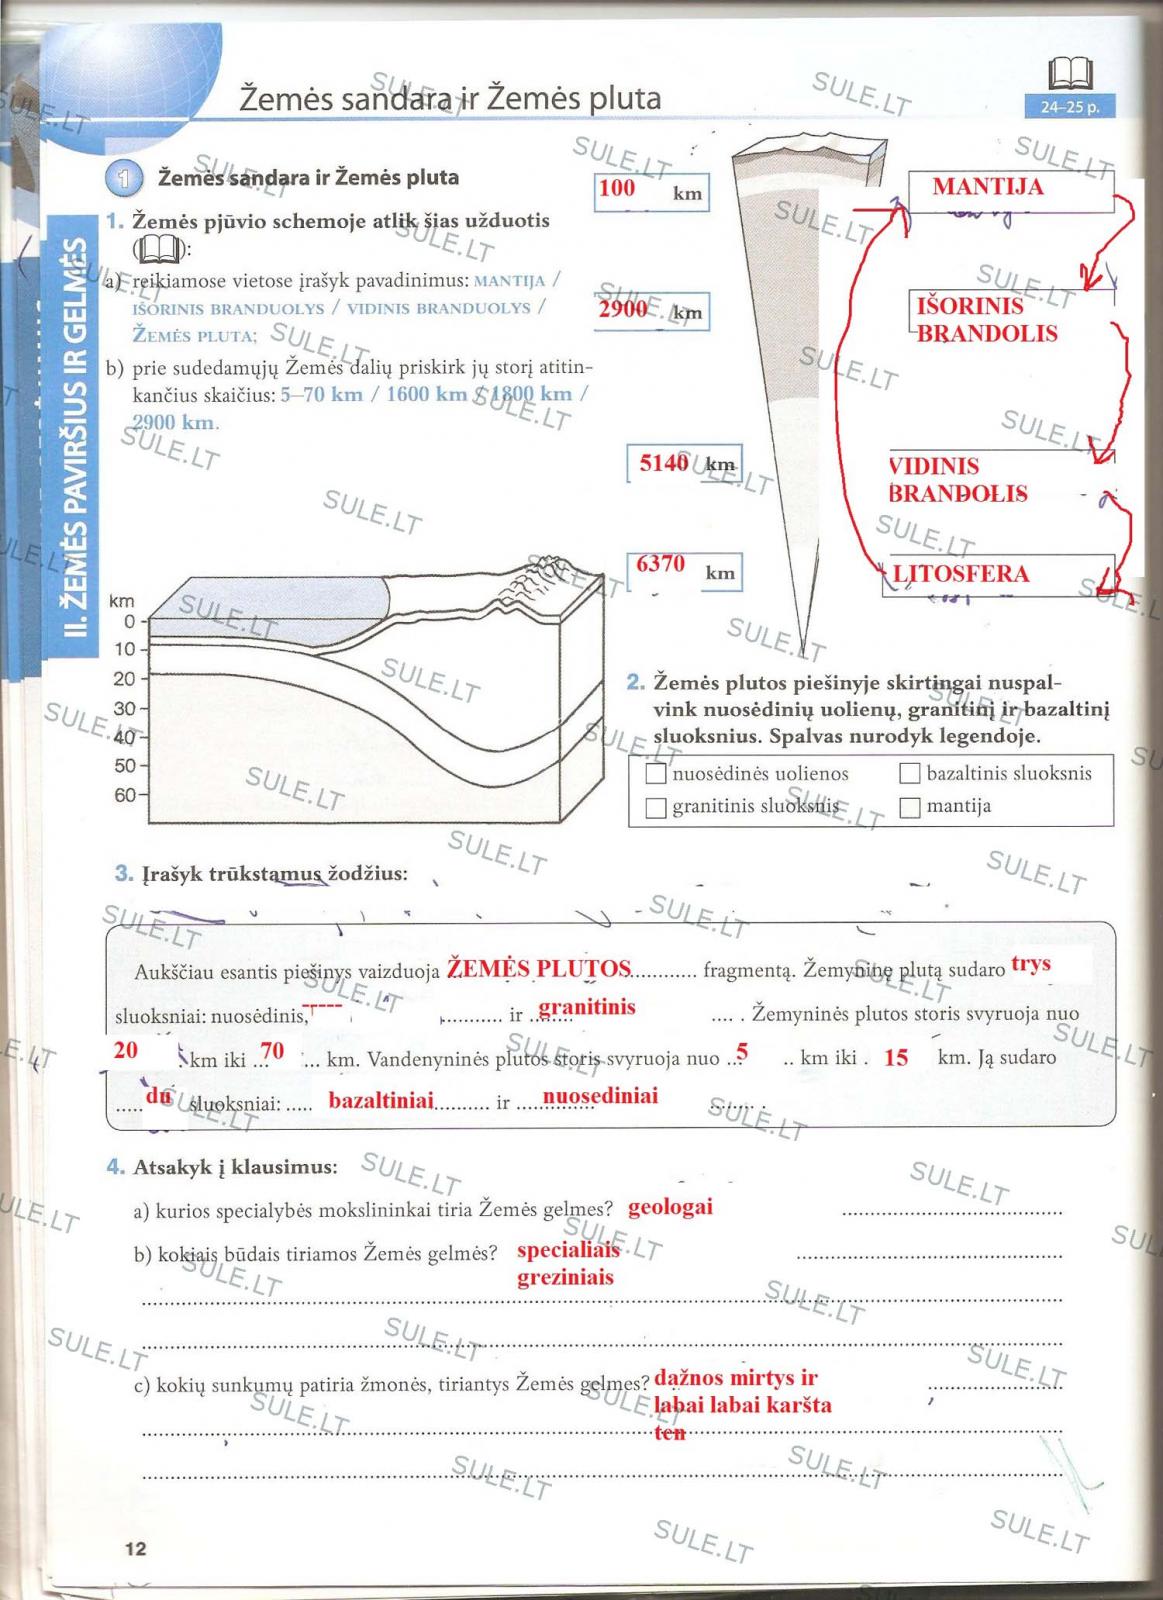 Žemės sandara ir Žemės pluta
24–25 p.
II. ŽEMĖS PAVIRŠIUS IR GELMĖS
1 Žemės sandara ir Žemės pluta
1. Žemės pjūvio schemoje atlik šias užduotis
( ):
a) reikiamose vietose įrašyk pavadinimus: MANTIJA /
IŠORINIS BRANDUOLYS / VIDINIS BRANDUOLYS /
ŽEMĖS PLUTA;
b) prie sudedamųjų Žemės dalių priskirk jų storį atitin-
kančius skaičius: 5–70 km / 1600 km / 1800 km /
2900 km.
100 km
2900 km
5140 km
6370 km
MANTIJA
IŠORINIS
BRANDOLIS
VIDINIS
BRANDOLIS
LITOSFERA
km
0
10
20
30
40
50
60
2. Žemės plutos piešinyje skirtingai nuspal-
vink nuosėdinių uolienų, granitinį ir bazaltinį
sluoksnius. Spalvas nurodyk legendoje.
nuosėdinės uolienos
bazaltinis sluoksnis
granitinis sluoksnis
mantija
3. Įrašyk trūkstamus žodžius:
Aukščiau esantis piešinys vaizduoja ŽEMĖS PLUTOS............ fragmentą. Žemyninę plutą sudaro trys
sluoksniai: nuosėdinis, ---- ........... ir ... granitinis .... . Žemyninės plutos storis svyruoja nuo
20 km iki ... 70 ... km. Vandenyninės plutos storis svyruoja nuo ... 5 .. km iki . 15 km. Ją sudaro
..... du sluoksniai: ..... bazaltiniai.......... ir .............. nuosediniai ........ .
4. Atsakyk į klausimus:
a) kurios specialybės mokslininkai tiria Žemės gelmes? geologai
b) kokiais būdais tiriamos Žemės gelmės? specialiais
greziniais
c) kokių sunkumų patiria žmonės, tiriantys Žemės gelmes? dažnos mirtys ir
labai labai karšta
ten
12
SULE.LT